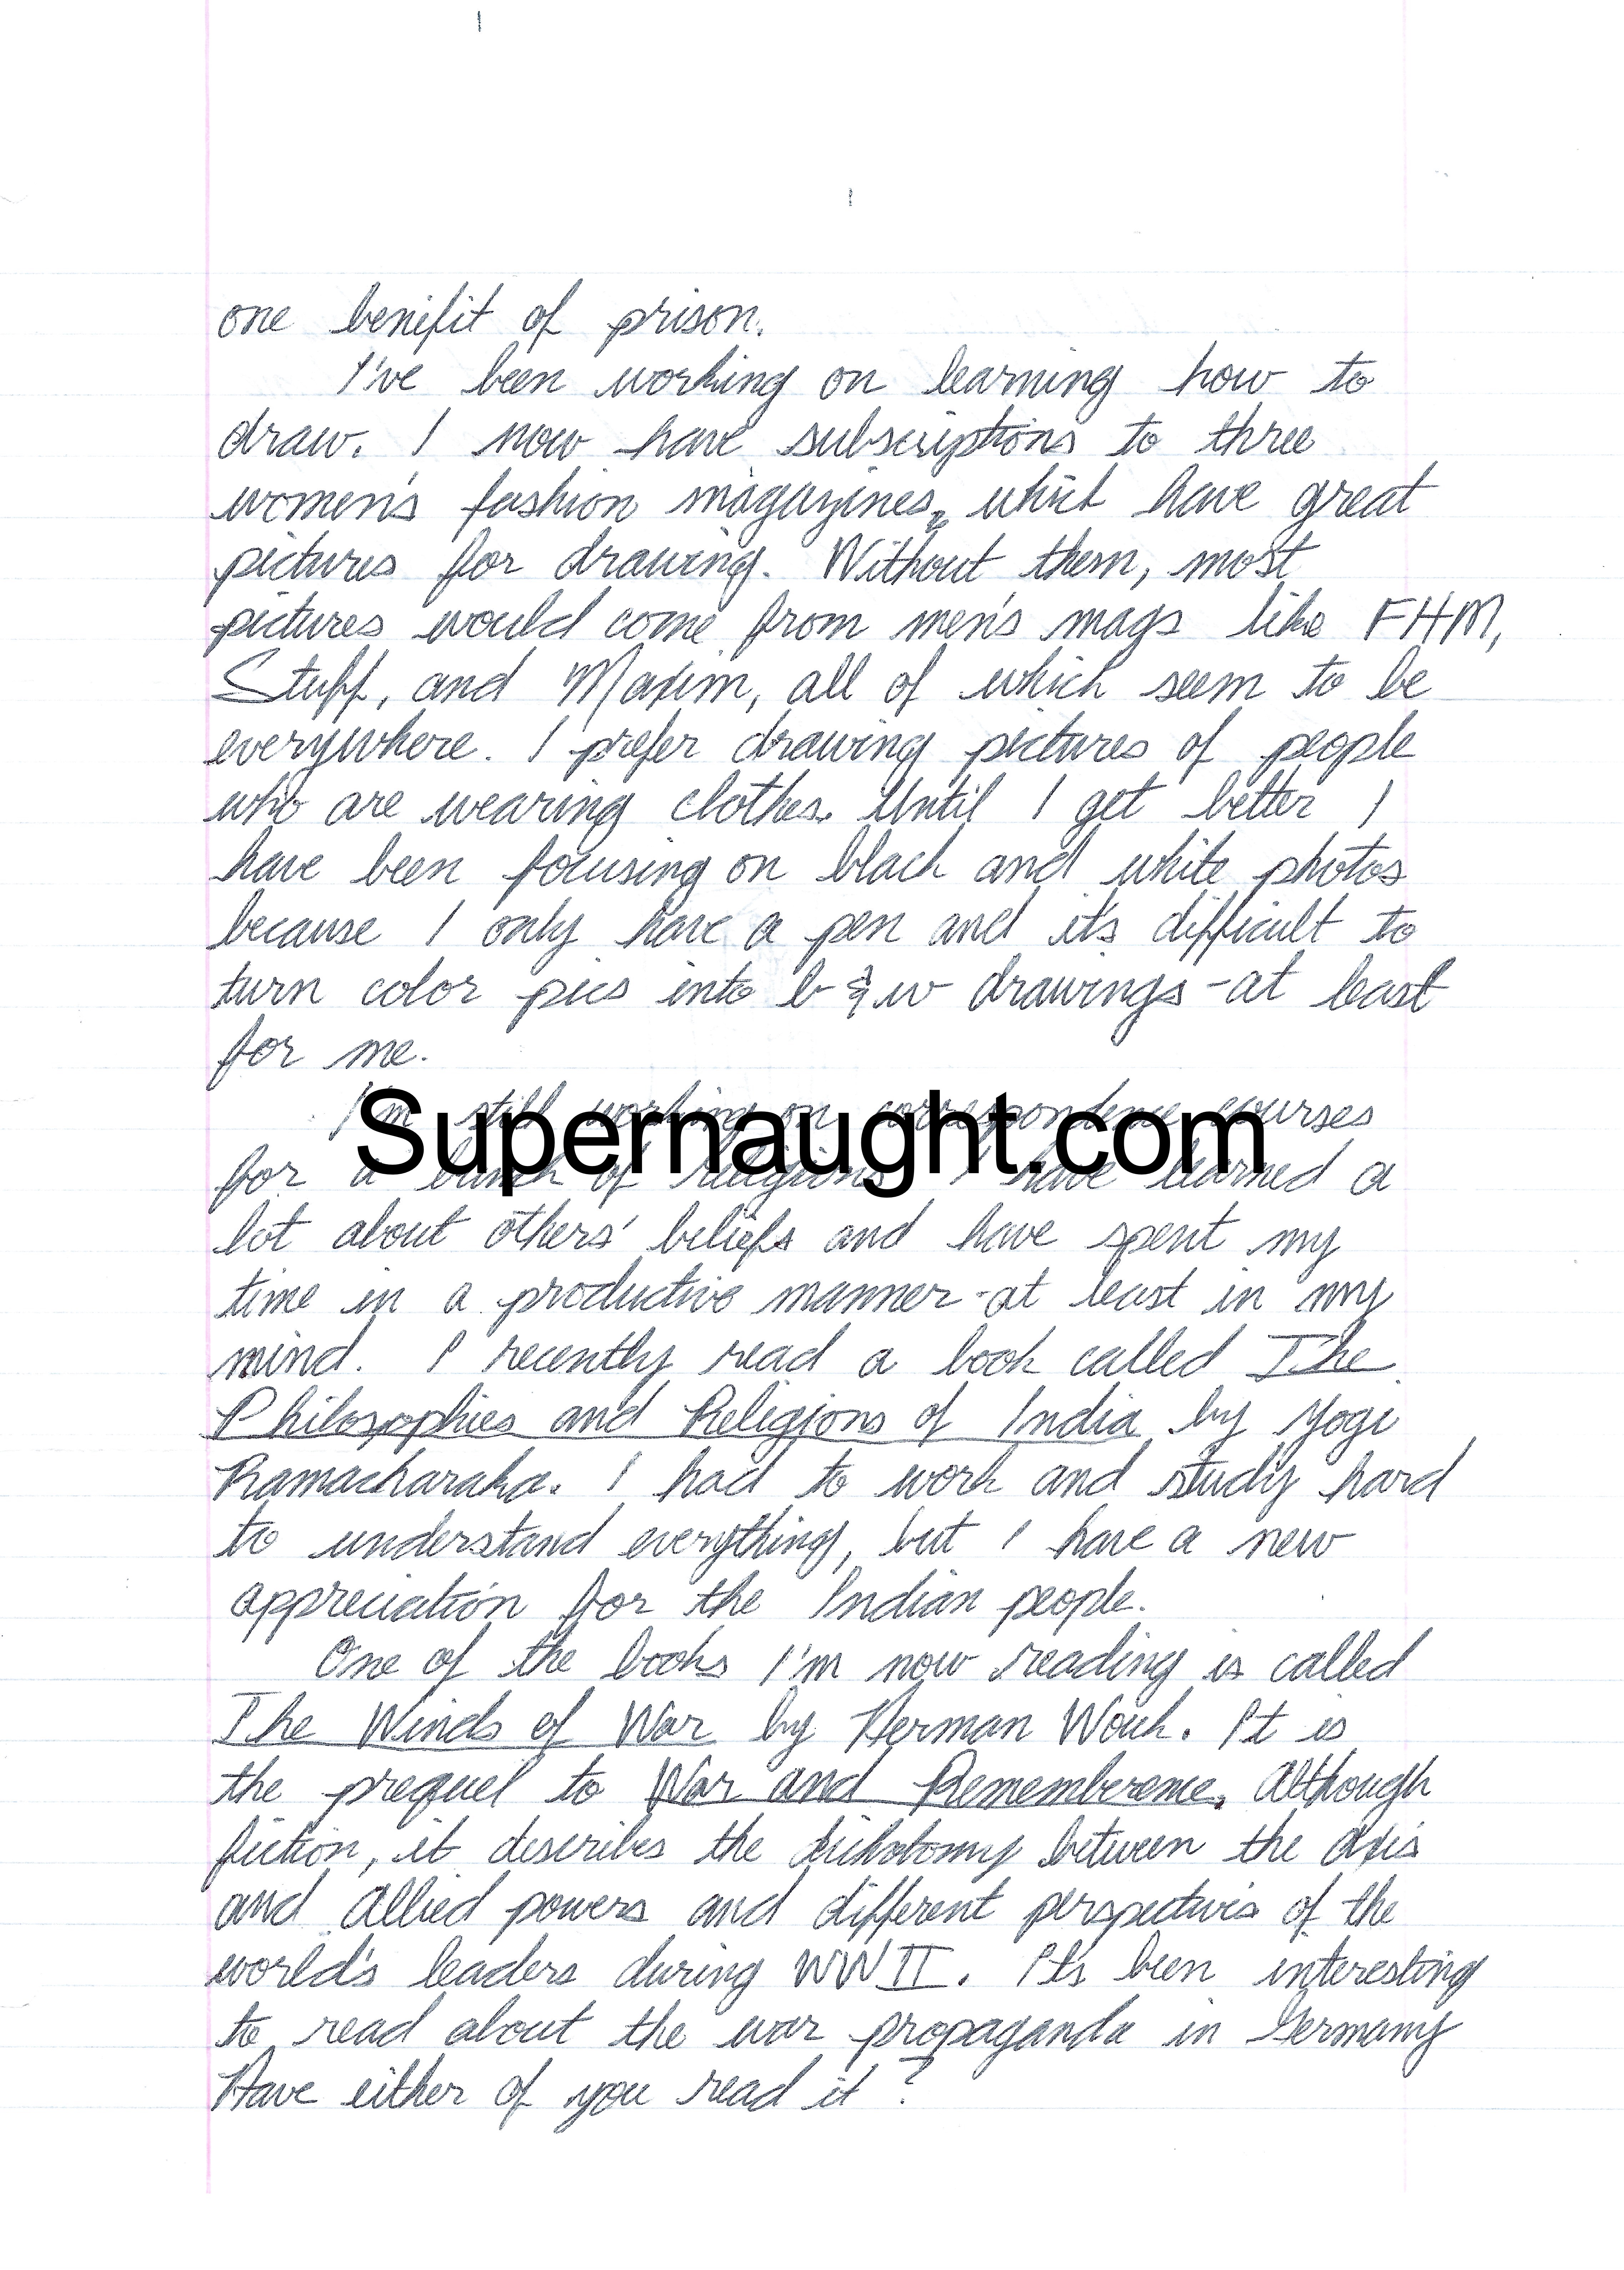 one benifit of prison.
I've been working on learning how to
draw. I now have subscriptions to three
women's fashion magazines, which have great
pictures for drawing. Without them, most
pictures would come from men's mags like FHM,
Stuff, and Maxim, all of which seem to be
everywhere. I prefer drawing pictures of people
who are wearing clothes. Until I get better I
have been focusing on black and white photos
because I only have a pen and it's difficult to
turn color pics into b & w drawings - at least
for me.
I'm still working on correspondence courses
Supernaught.com
for a bunch of religions. I have learned a
lot about others' beliefs and have spent my
time in a productive manner - at least in my
mind. I recently read a book called The
Philosophies and Religions of India by Yogi
Ramacharaka. I had to work and study hard
to understand everything, but I have a new
appreciation for the Indian people.
One of the books I'm now reading is called
The Winds of War by Herman Wouk. It is
the prequel to War and Rememberence. Although
fiction, it describes the dichotomy between the Axis
and Allied powers and different perspectives of the
world's leaders during WWII. It's been interesting
to read about the war propaganda in Germany
Have either of you read it?